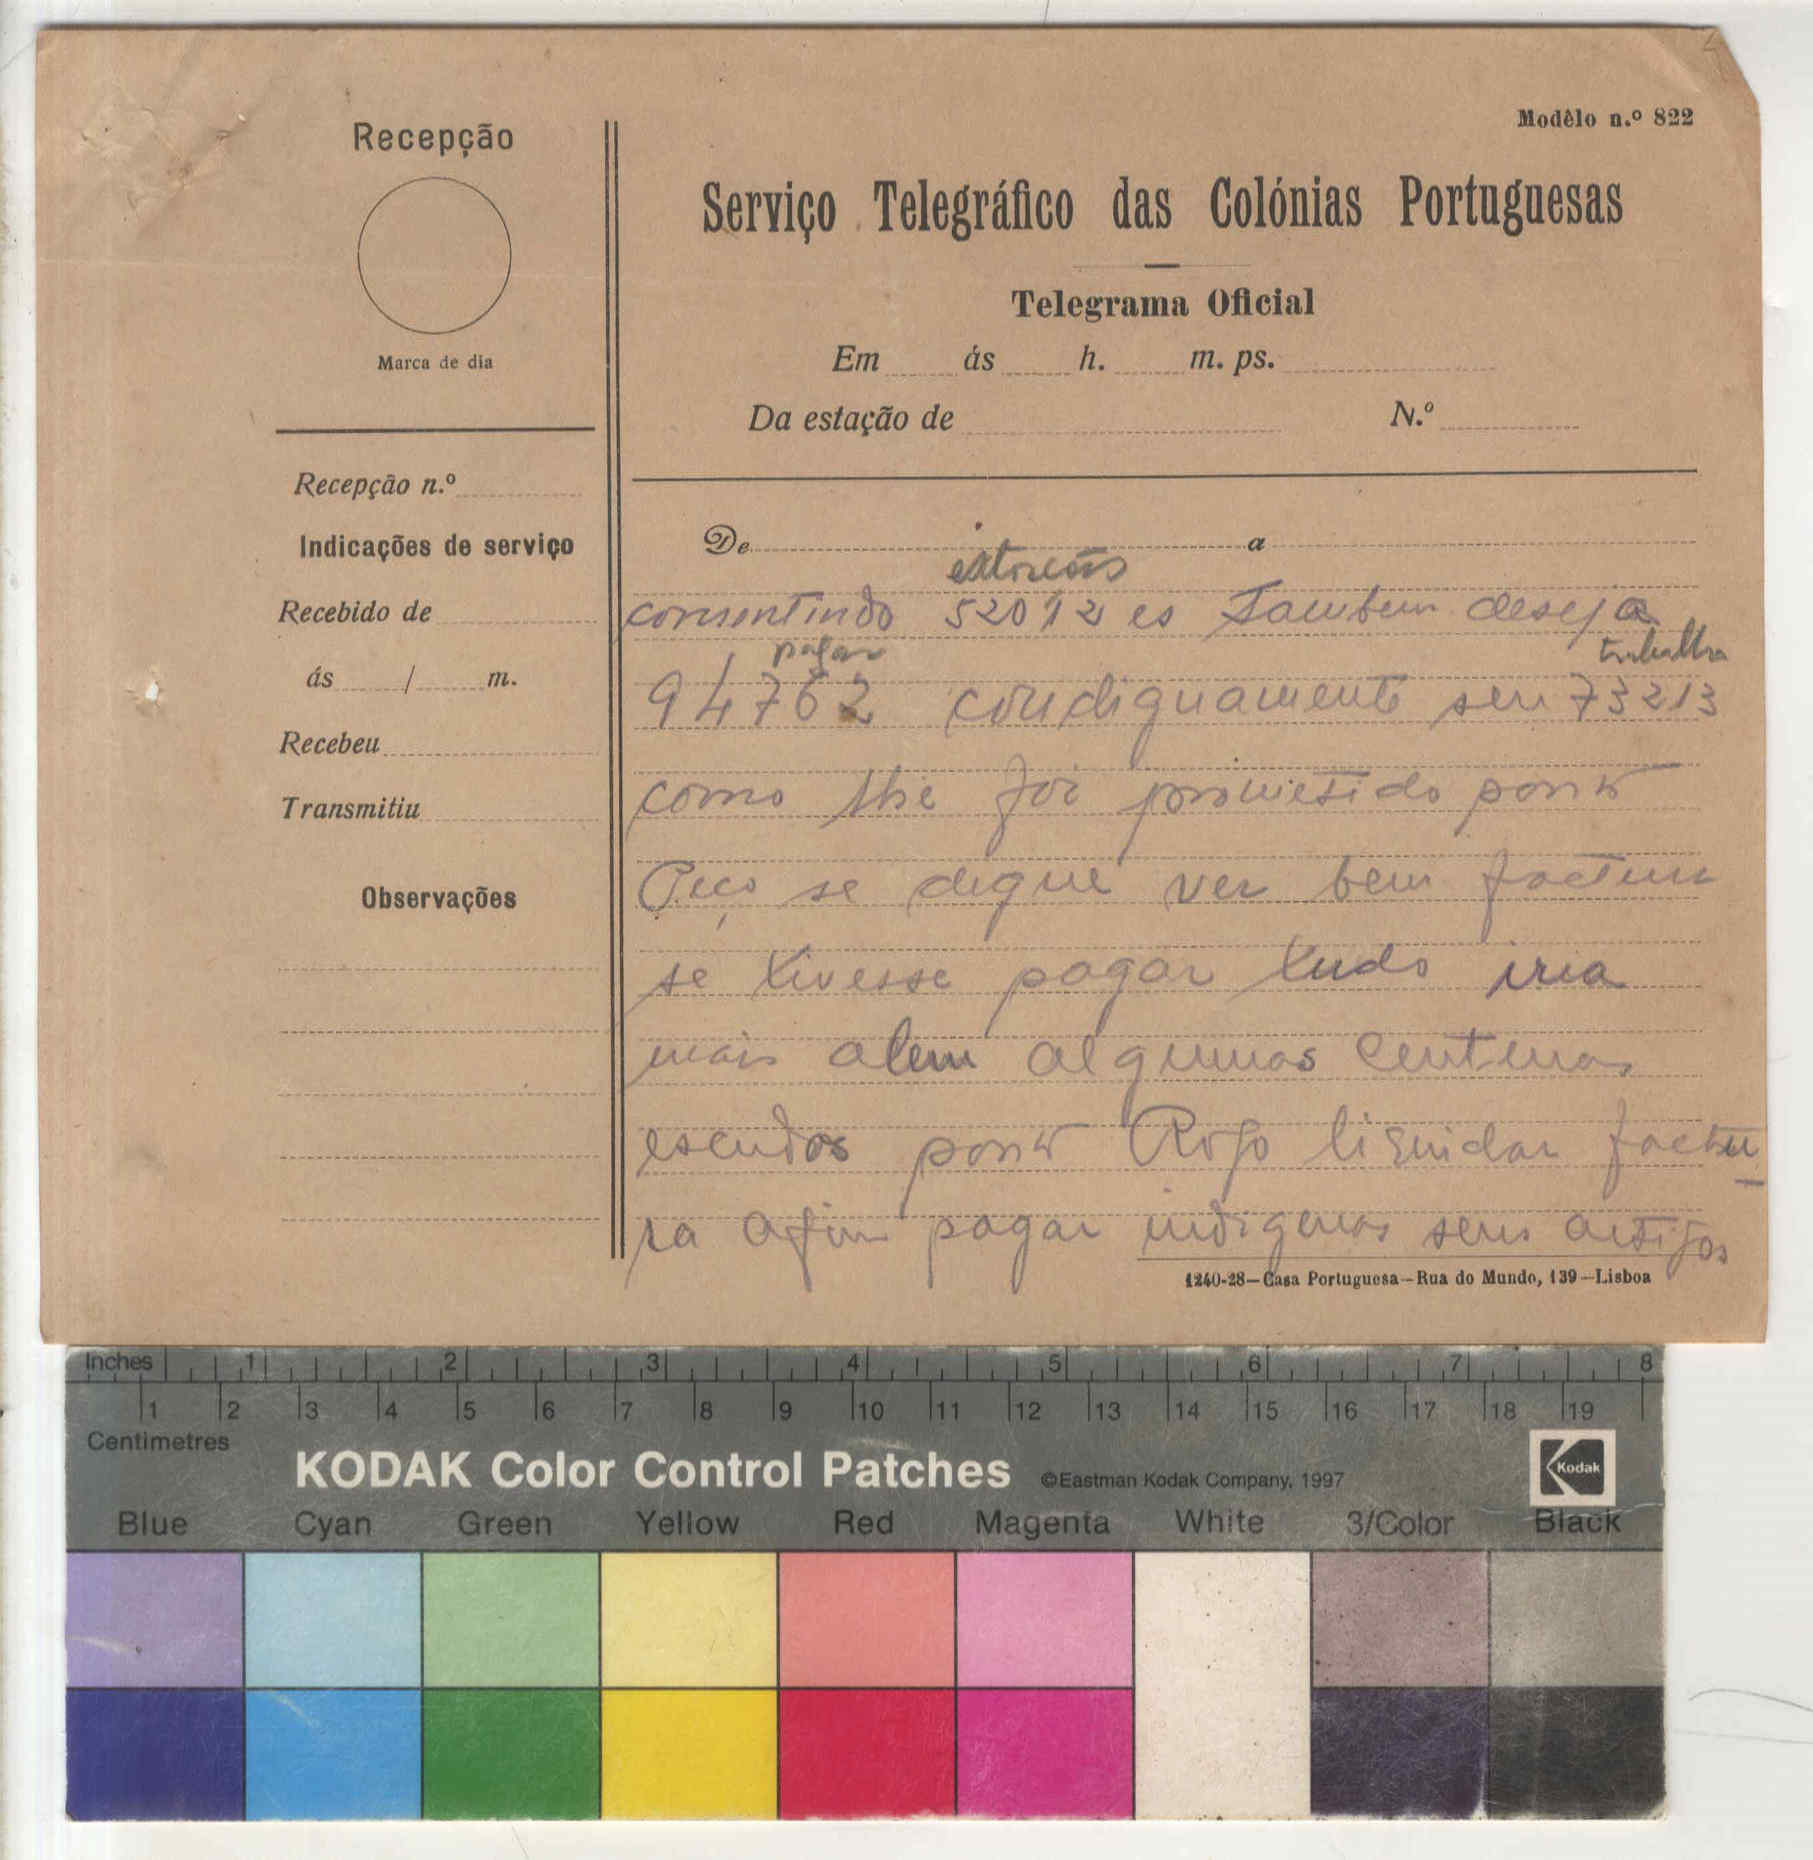 Modêlo n.º 822
Recepção
Marca de dia
Recepção n.º
Indicações de serviço
Recebido de
ás / m.
Recebeu
Transmitiu
Observações
Serviço Telegráfico das Colónias Portuguesas
Telegrama Oficial
Em ás h. m. ps.
Da estação de N.º
De a
extorcões
consentindo 52012 es Tambem deseja
pagar trabalho
94762 condignamente seu 73213
como lhe foi prometido ponto
Peço se digne ver bem factura
se tivesse pagar tudo iria
mais alem algumas centenas
escudos ponto Rogo liquidar factu
ra afim pagar indigenas seus artigos
1240-28—Casa Portuguesa—Rua do Mundo, 139—Lisboa
Inches 1 2 3 4 5 6 7 8
1 2 3 4 5 6 7 8 9 10 11 12 13 14 15 16 17 18 19
Centimetres
KODAK Color Control Patches ©Eastman Kodak Company, 1997 Kodak
Blue Cyan Green Yellow Red Magenta White 3/Color Black